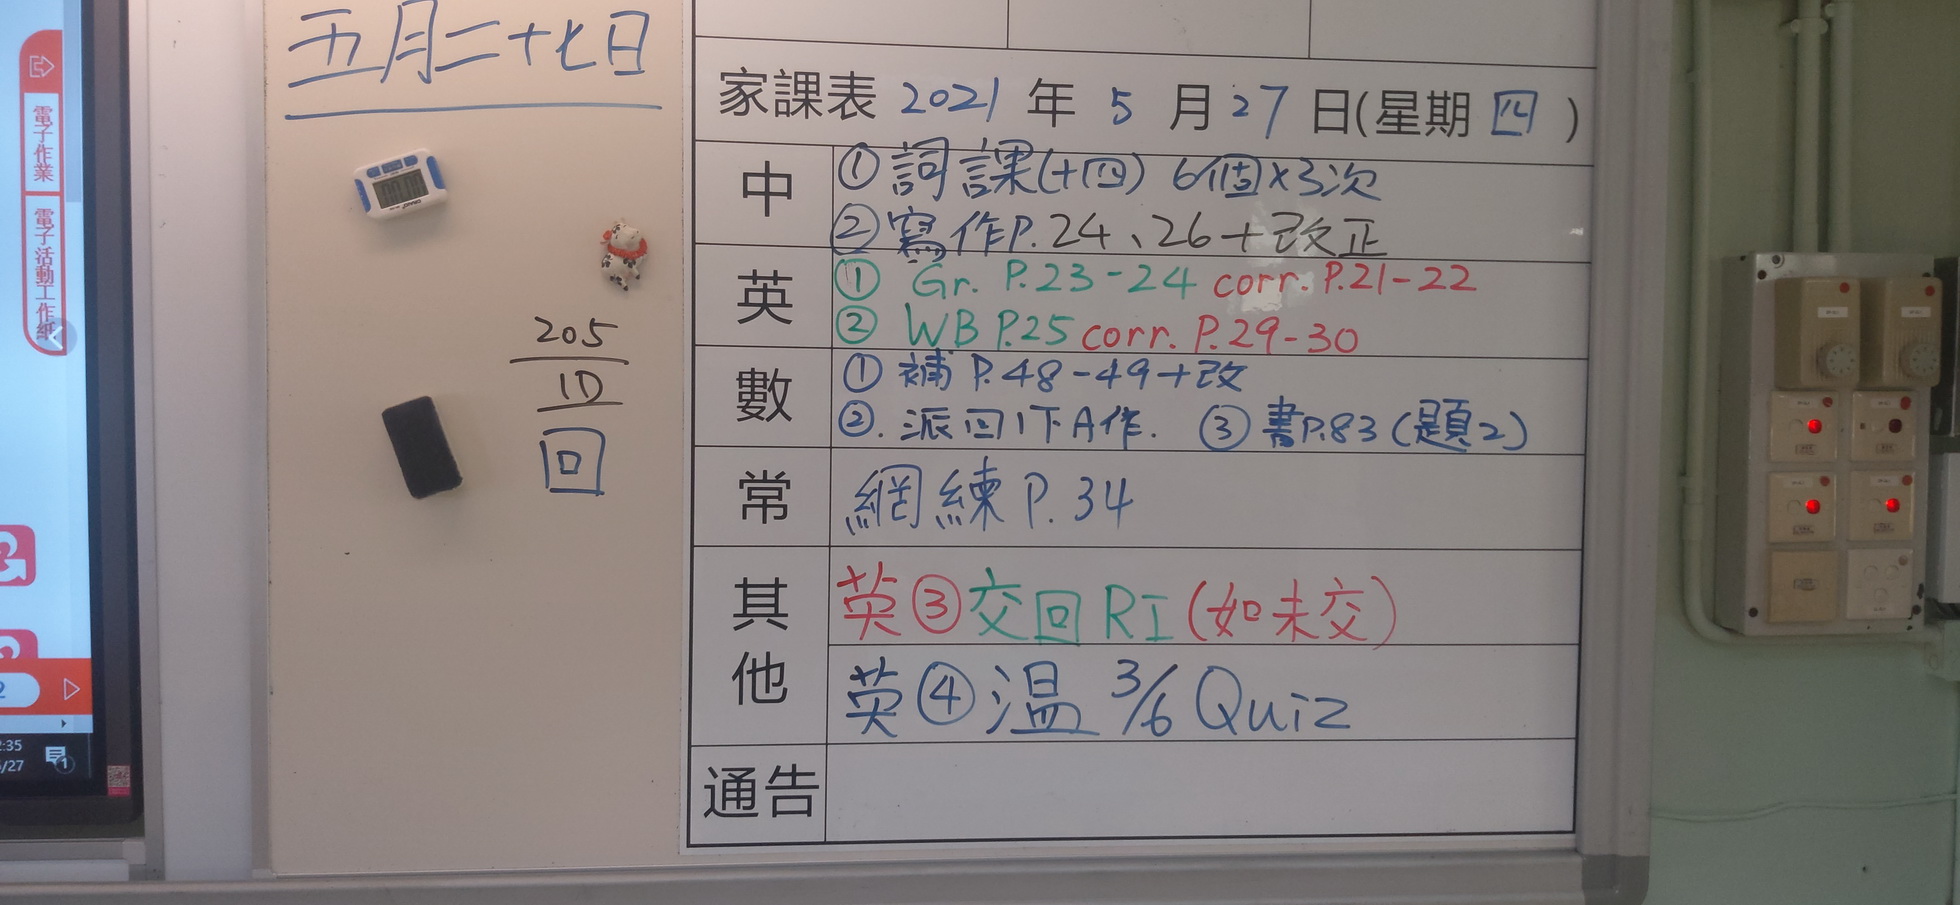 五月二十七日
電子作業
電子活動工作紙
205
1D
回
家課表 2021 年 5 月 27 日(星期 四 )
中
① 詞課(十四) 6個×3次
② 寫作P.24、26+改正
英
① Gr. P.23-24 corr. P.21-22
② WB P.25 corr. P.29-30
數
① 補 P.48-49+改
②. 派回1下A作. ③ 書P.83 (題2)
常
網練 P.34
其他
英③交回RI(如未交)
英④溫 3/6 Quiz
通告
2
:35
/27
1